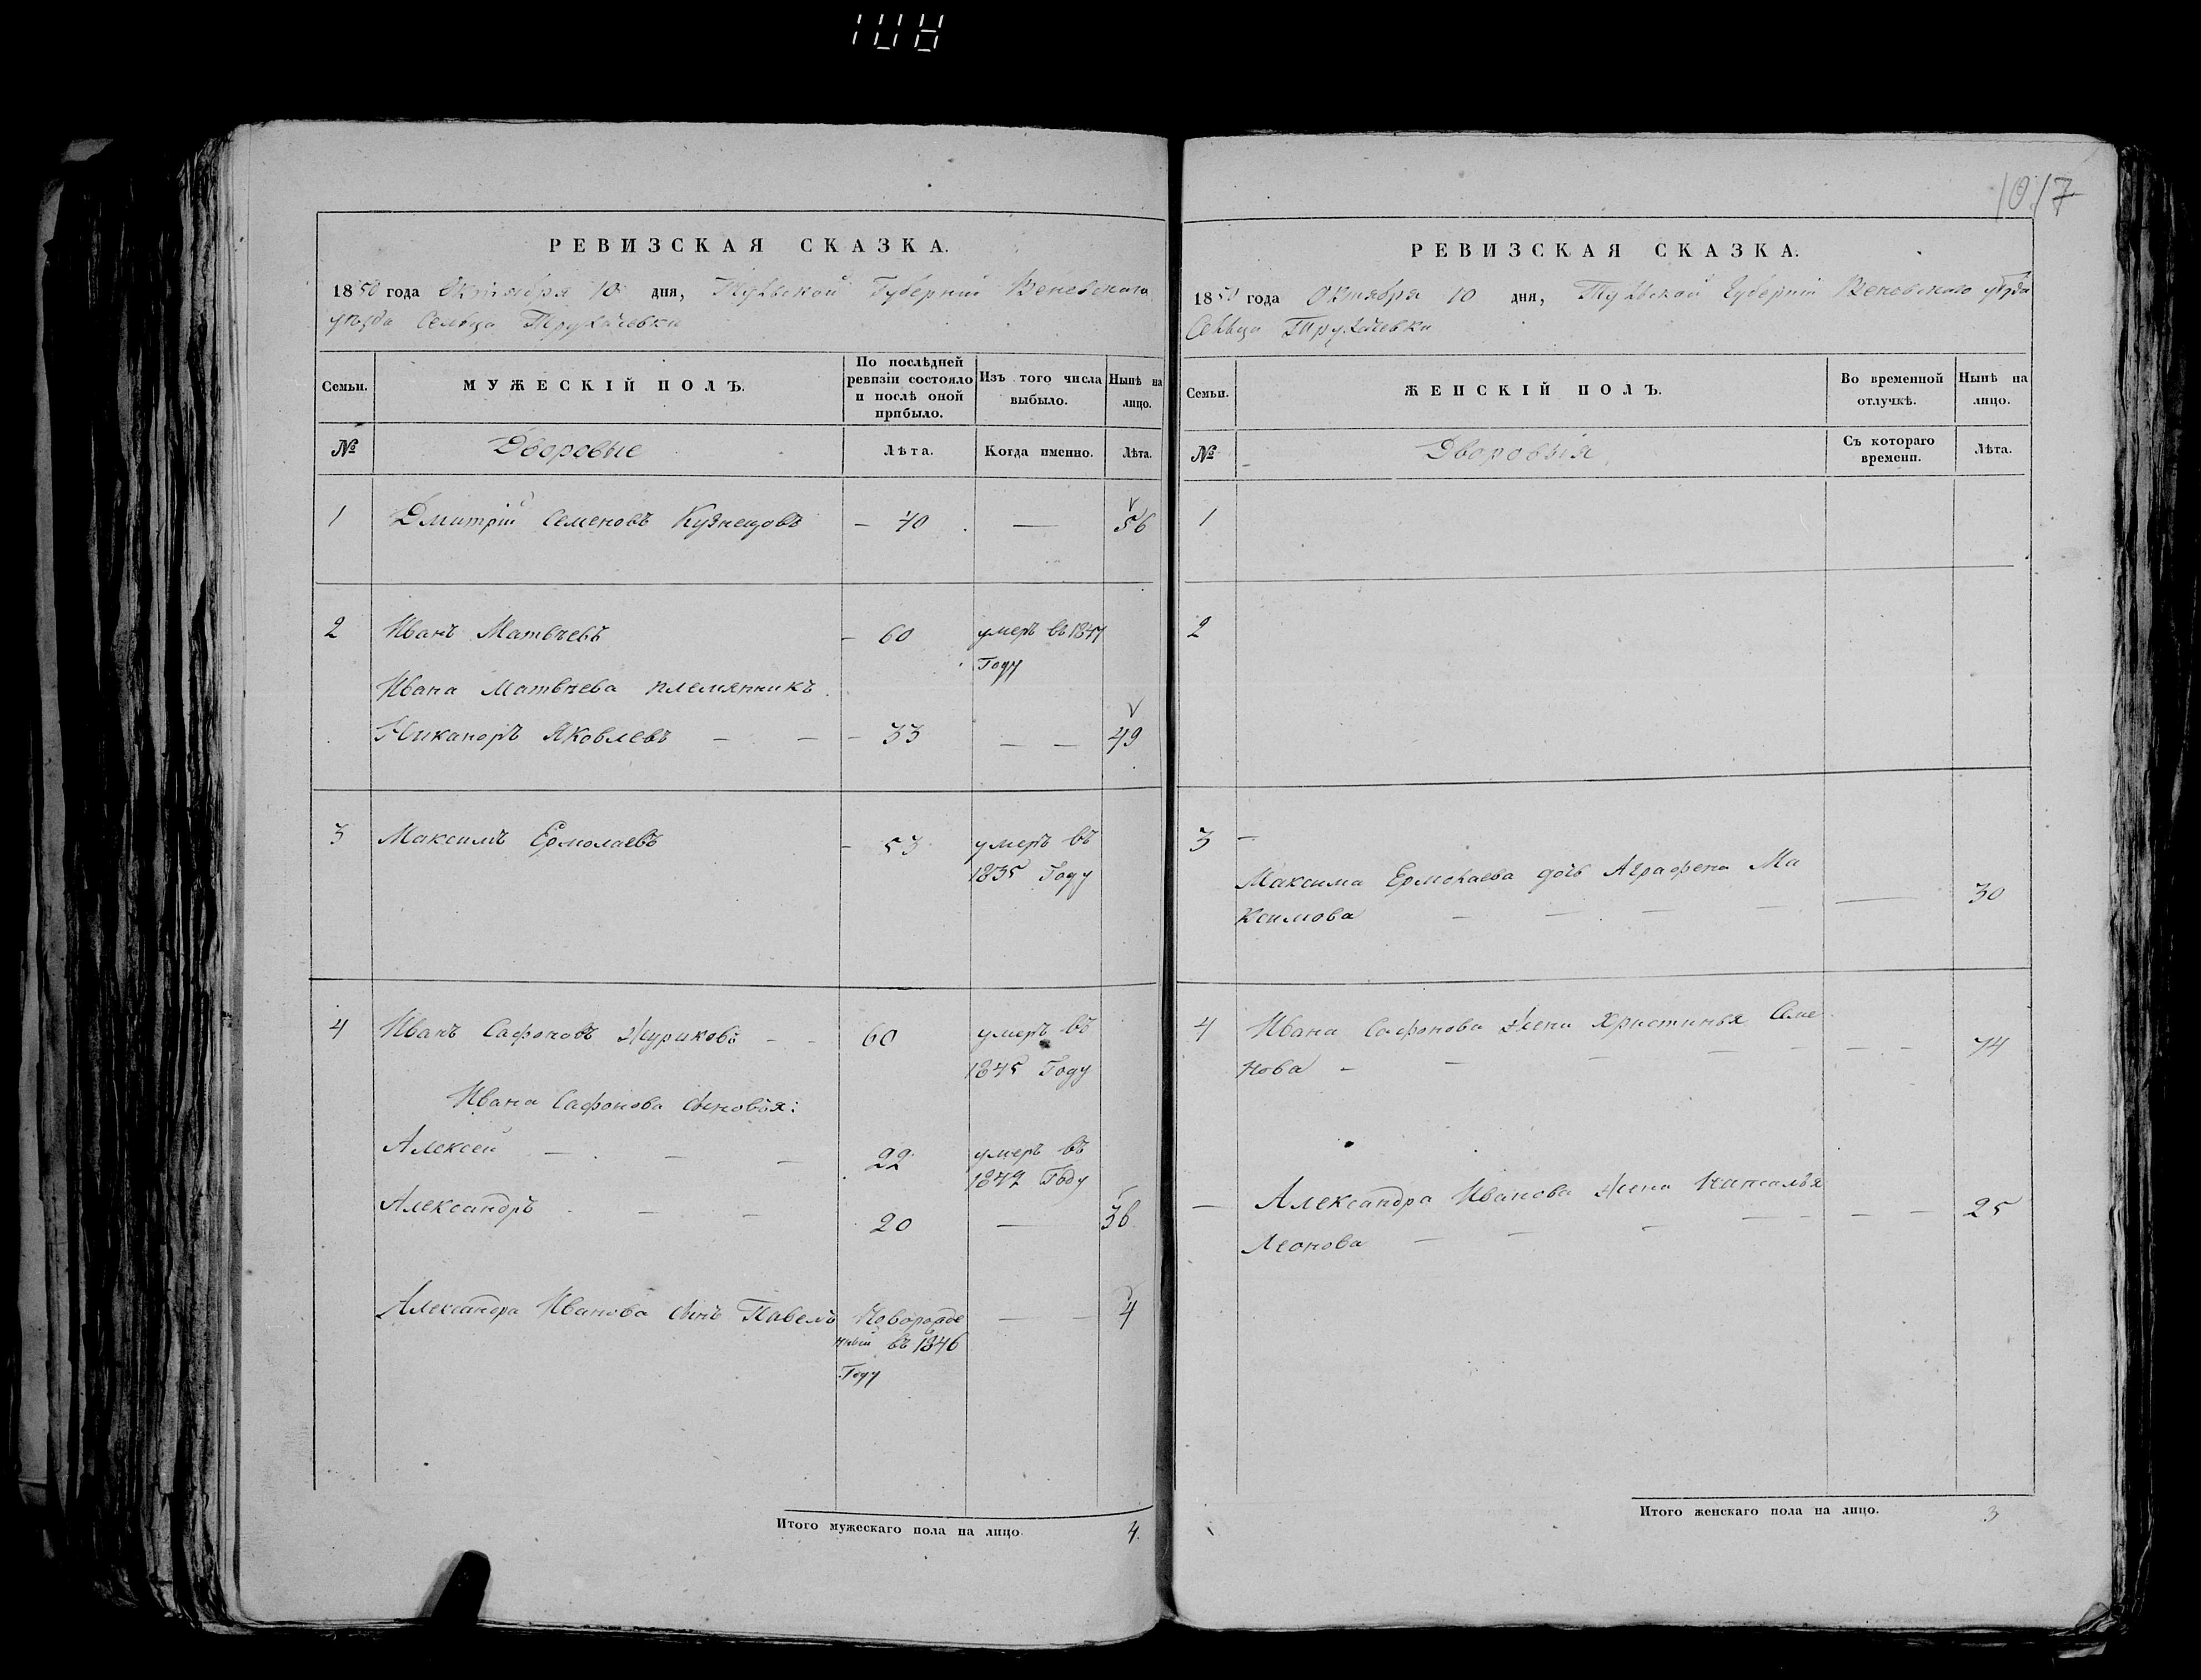 1017
РЕВИЗСКАЯ СКАЗКА.
1850 года Октября 10 дня, Тульской Губерніи Веневскаго
уѣзда Сельца
Семьи.
МУЖЕСКІЙ ПОЛЪ.
По послѣдней ревизіи состояло и послѣ оной прибыло.
Изъ того числа выбыло.
Нынѣ на лицо.
№
Дворовые
Лѣта.
Когда именно.
Лѣта.
1 Дмитрій Семеновъ Кузнецовъ — 40 — 56
2 Иванъ Матвѣевъ — 60 умеръ въ 1847
Году
Ивана Матвѣева племянникъ
Никаноръ Яковлевъ — — — 33 — — 49
3 Максимъ Ермолаевъ — 53 умеръ въ
1835 Году
4 Иванъ Сафоновъ — — 60 умеръ въ
1845 Году
Ивана Сафонова сыновья:
Алексей — — — 22 умеръ въ
1842 Году
Александръ — — 20 — 36
Александра Иванова сынъ Павелъ Новорожде — — 4
нный въ 1846
Году
Итого мужескаго пола на лицо 4.
РЕВИЗСКАЯ СКАЗКА.
1850 года Октября 10 дня, Тульской Губерніи Веневскаго уѣзда
Сельца
Семьи.
ЖЕНСКІЙ ПОЛЪ.
Во временной отлучкѣ.
Нынѣ на лицо.
№
Дворовыя
Съ котораго времени.
Лѣта.
1
2
3 —
Максима Ермолаева дочь Аграфена Ма
ксимова — — — — — 30
4 Ивана Сафонова жена Христинья Семе
нова — — — — — — — 74
— Александра Иванова жена Наталья
Леонова — — — — — — 25
Итого женскаго пола на лицо. 3